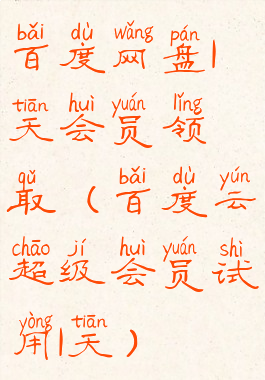 bǎi dù wǎng pán
百度网盘1
tiān huì yuán lǐng
天会员领
qǔ bǎi dù yún
取（百度云
chāo jí huì yuán shì
超级会员试
yòng tiān
用1天）